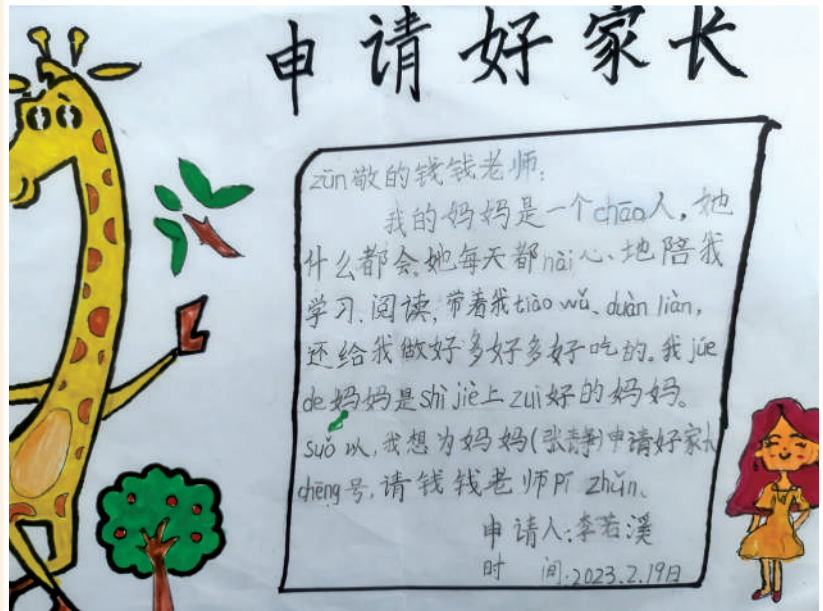 申请好家长
zūn敬的钱钱老师:
我的妈妈是一个chāo人,她
什么都会,她每天都nài心、地陪我
学习、阅读,带着我tiào wǔ、duàn liàn,
还给我做好多好多好吃的。我jué
de妈妈是shì jiè上zuì好的妈妈。
suǒ以,我想为妈妈(张静)申请好家长
chēng号,请钱钱老师pī zhǔn、
申请人:李若溪
时 间:2023.2.19日